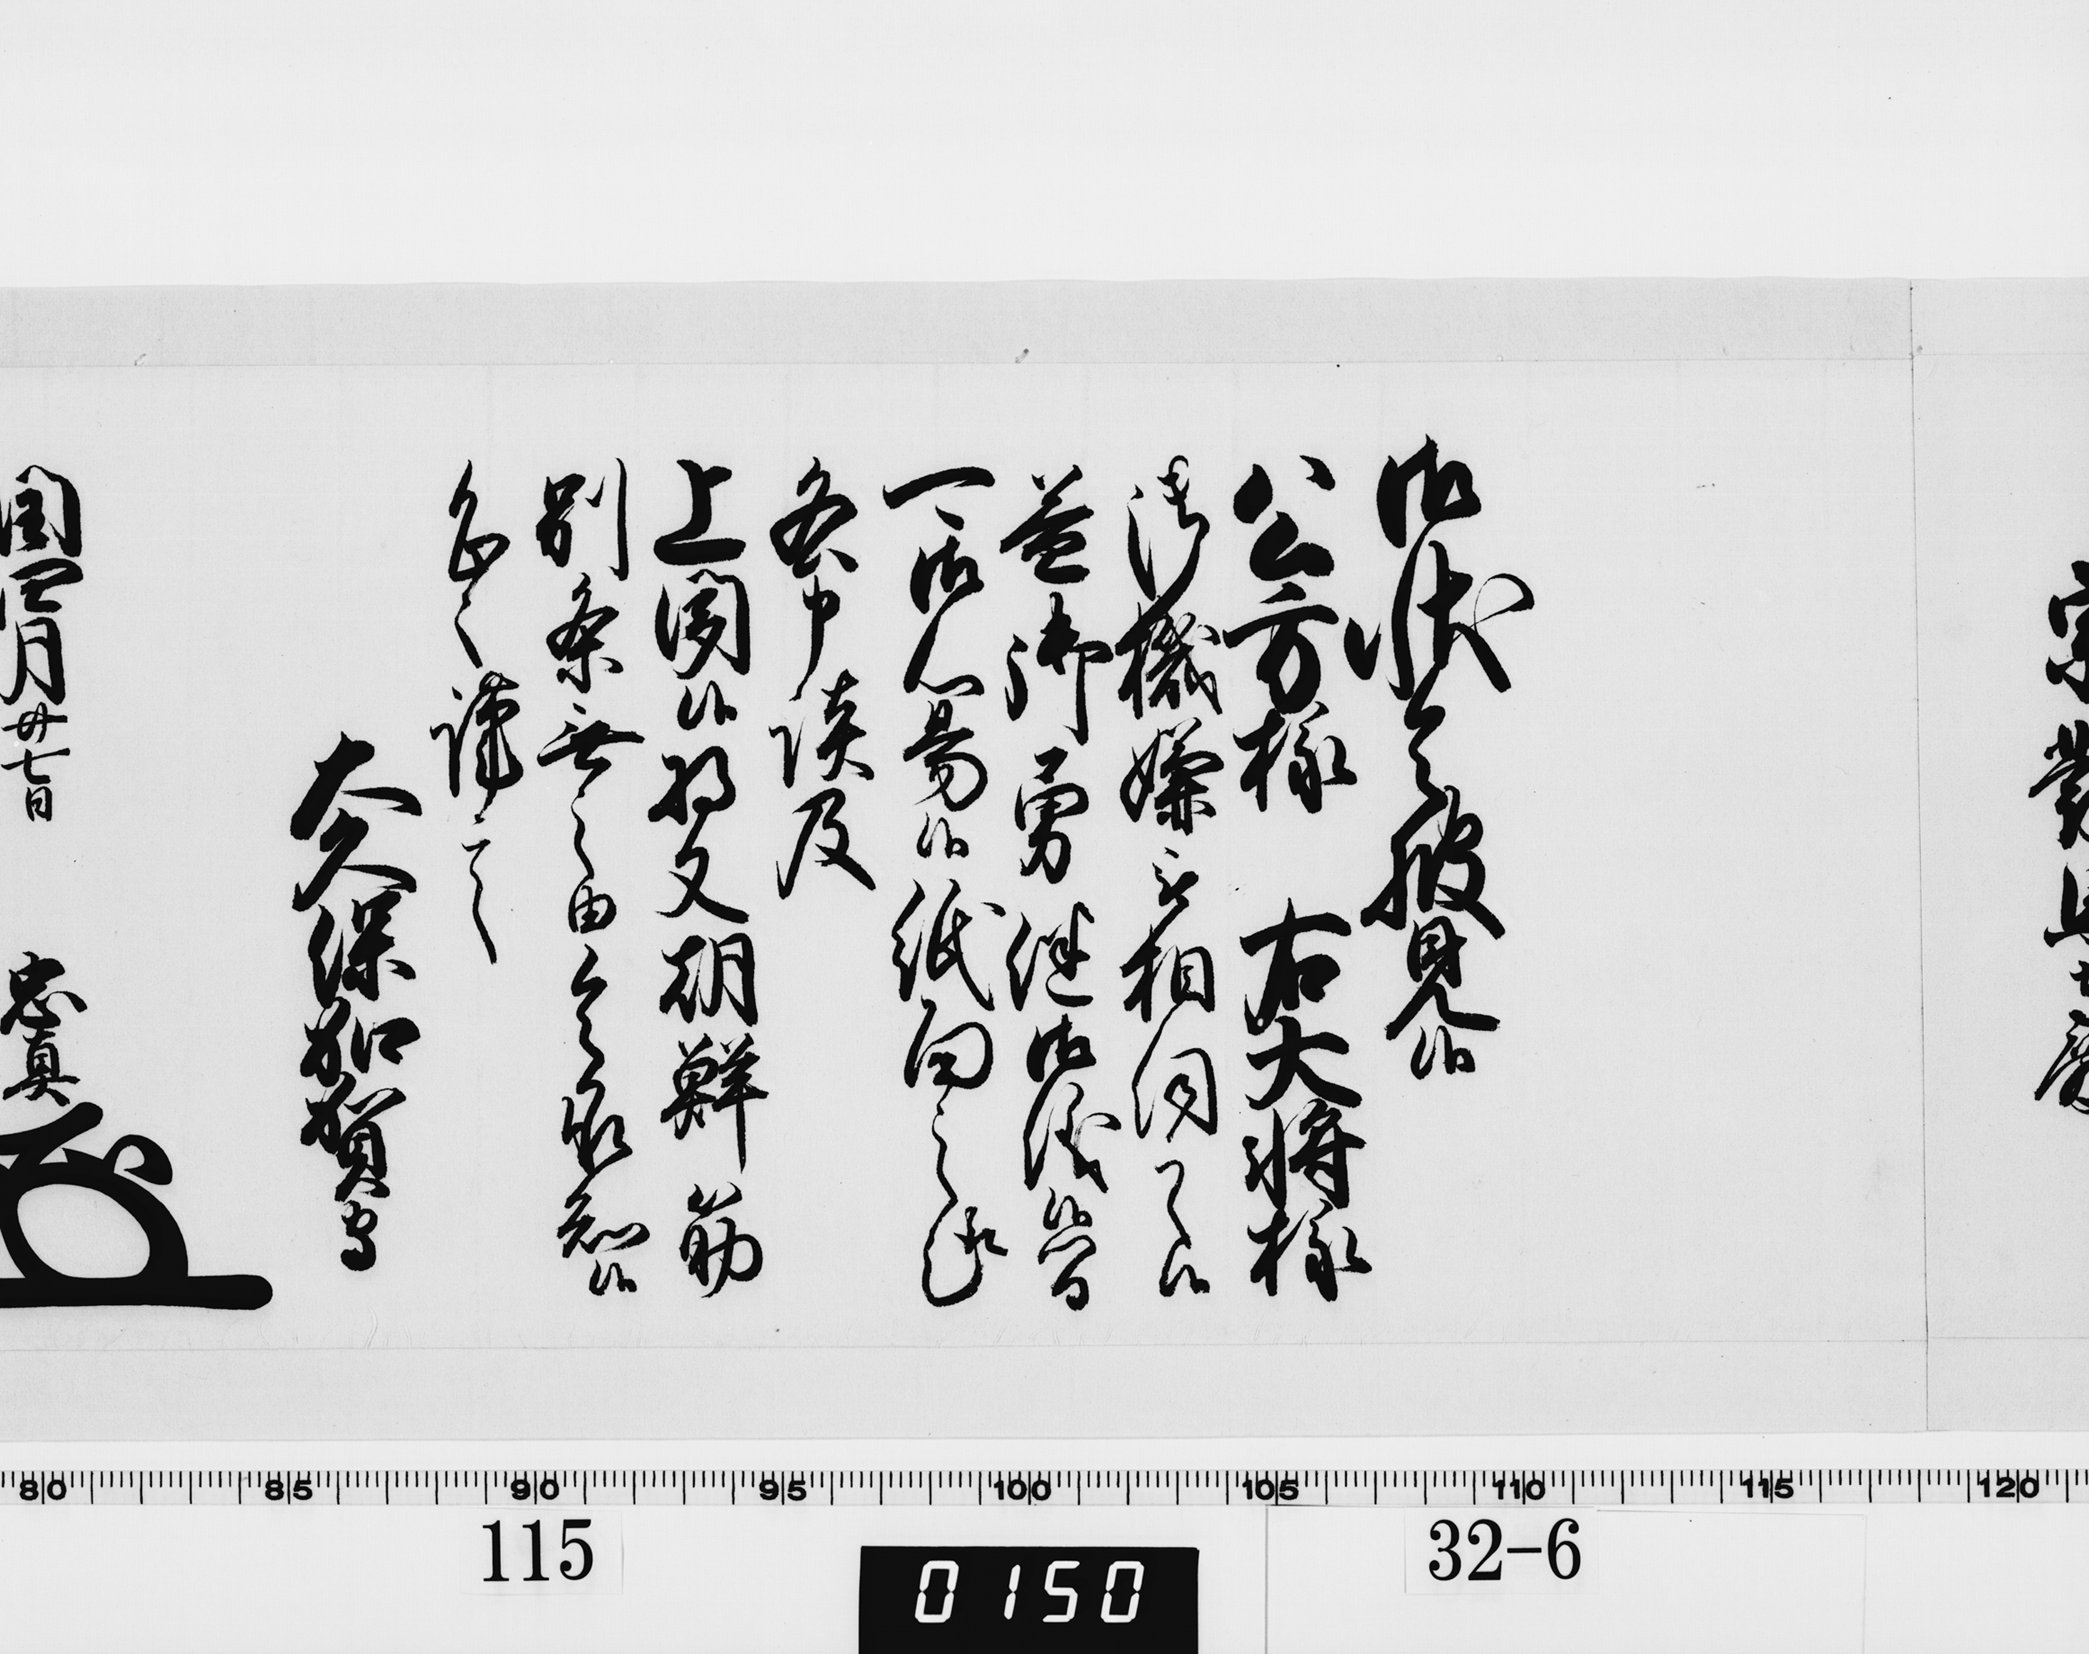 宗對馬守殿
御状令披見候
公方様 右大将様
御機嫌被相伺之候
益御勇健御儀候間
可御心易候紙面之趣
各申談及
上聞候将又朝鮮筋
別条無之由令承知候
恐々謹言
大久保加賀守
閏四月廿七日 忠真
80 85 90 95 100 105 110 115 120
115
32-6
0150